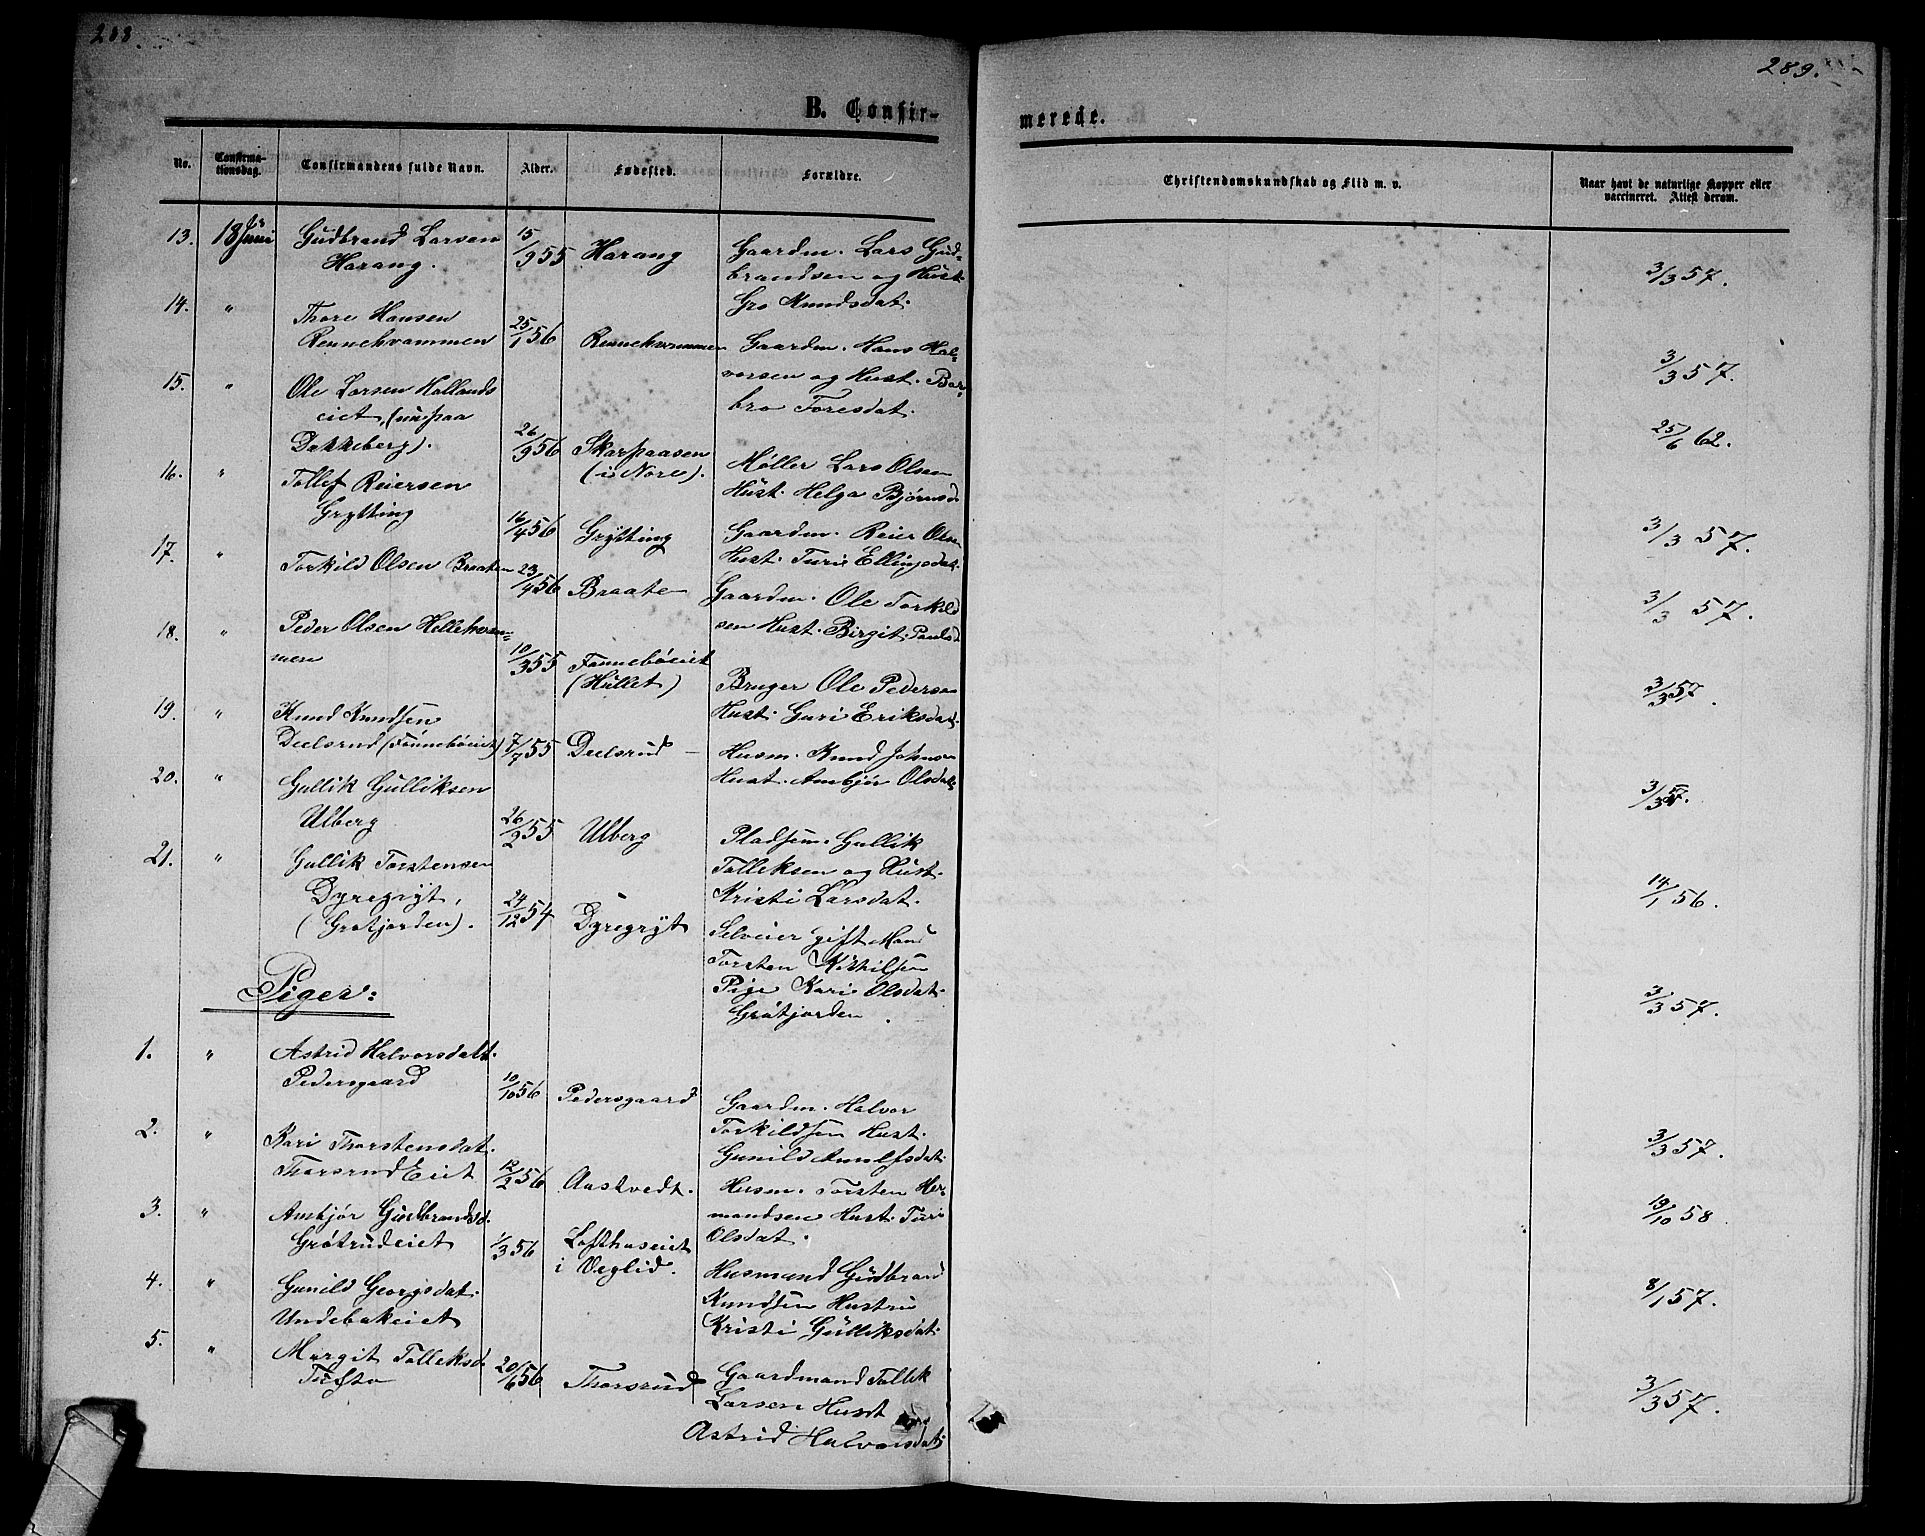 288.
B. Confir-
No.
Confirma-
tionsdag.
Confirmandens fulde Navn.
Alder.
Fødested.
Forældre.
13. 18 Juni Gudbrand Larsen 15/9 55 Harang Gaardm. Lars Gud-
Harang. brandsen og Hust.
Gro Knudsdat.
14. " Thore Hansen 25/1 56 Rennehvammen Gaardm. Hans Hal-
Rennehvammen vorsen og Hust. Bar-
bro Toresdat.
15. " Ole Larsen Hallands 26/9 56 Skarpaasen Møller Lars Olsen
eiet, (nu paa (i Nore). Hust. Helga Bjørnsd.
Dokkeberg).
16. " Tollef Reiersen 16/4 56 Grytting Gaardm. Reier Olsen
Grytting Hust. Turi Ellingsdat.
17. " Torkild Olsen Braaten 23/4 56 Braaten Gaardm. Ole Torkild
sen Hust. Birgit Paulsd
18. " Peder Olsen Hellehvam- 10/3 55 Fønnebøeiet Bruger Ole Pedersen
men (Hullet) Hust. Guri Eriksdat.
19. " Knud Knudsen 7/7 55 Deelsrud Husm. Knud Johnsen
Deelsrud (Fønnebøeiet) Hust. Ambjør Olsdat.
20. " Gullik Gulliksen 26/2 55 Ulberg Pladsem. Gullik
Ulberg Tolleksen og Hust.
Kristi Larsdat.
21. " Gullik Torstensen 24/12 54 Dyregryt Selveier gift Mand
Dyregryt, Torsten Kittilsen
(Grøtjorden). Pige Kari Olsdat.
Grøtjorden.
Piger:
1. " Astrid Halvorsdatt. 10/10 56 Pedersgaard Gaardm. Halvor
Pedersgaard Torkildsen Hust.
Gunild Arnulfsdat.
2. " Kari Thorstensdat. 12/2 56 Aastvedt. Husm. Torsten Her-
Thorsrud Eiet mandsen Hust. Turi
Olsdat.
3. " Ambjør Gudbrandsd. 1/3 56 Lofthuseiet Husmand Gudbrand
Grøtrudeiet i Veglid. Knudsen Hustru
Kristi Gulliksdat.
4. " Gunild Georgsdat.
Undebakeiet
5. " Margit Tolleksd. 20/6 56 Thorsrud Gaardmand Tollik
Tufsto Larsen Hust
Astrid Halvorsdat.
289.
merede.
Christendomskundskab og Flid m. v.
Naar havt de naturlige Kopper eller
vaccineret. Attest derom.
3/3 57.
3/3 57.
25/6 62.
3/3 57.
3/3 57.
3/3 57.
3/3 57.
14/1 56.
3/3 57.
3/3 57.
19/10 58
8/1 57.
3/3 57.